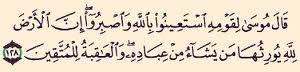 قَالَ مُوسَىٰ لِقَوْمِهِ ٱسْتَعِينُوا۟ بِٱللَّهِ وَٱصْبِرُوٓا۟ ۖ إِنَّ ٱلْأَرْضَ
لِلَّهِ يُورِثُهَا مَن يَشَآءُ مِنْ عِبَادِهِۦ ۖ وَٱلْعَٰقِبَةُ لِلْمُتَّقِينَ ١٢٨